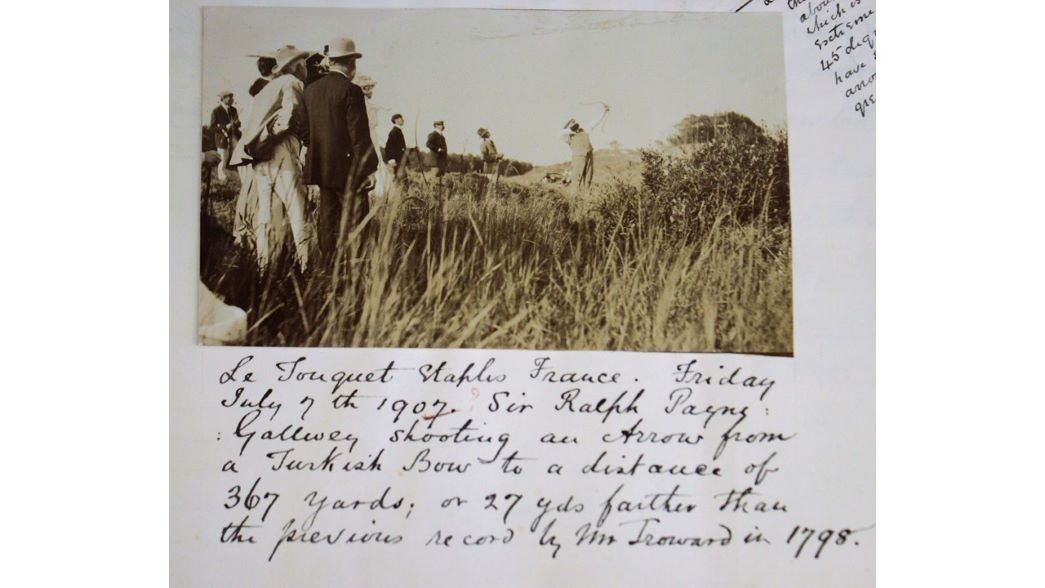 abou
which is
Extreme
45 deg
have
arro
gre
Le Touquet Etaples France. Friday
July 7th 1907. ? Sir Ralph Payne:
: Gallwey shooting an Arrow from
a Turkish Bow to a distance of
367 yards; or 27 yds farther than
the previous record by Mr Troward in 1798.